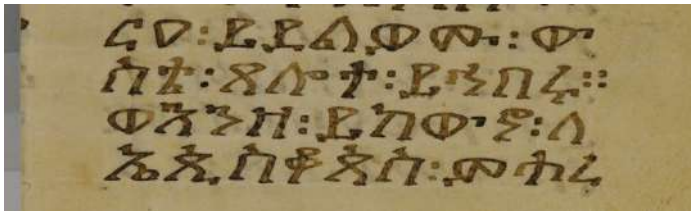 ይደልዎሙ፡ው
ስተ፡ጸሎት፡ይንበሩ።
ወእንዘ፡ይከውኑ፡ለ
ኤጲስቆጶስ፡